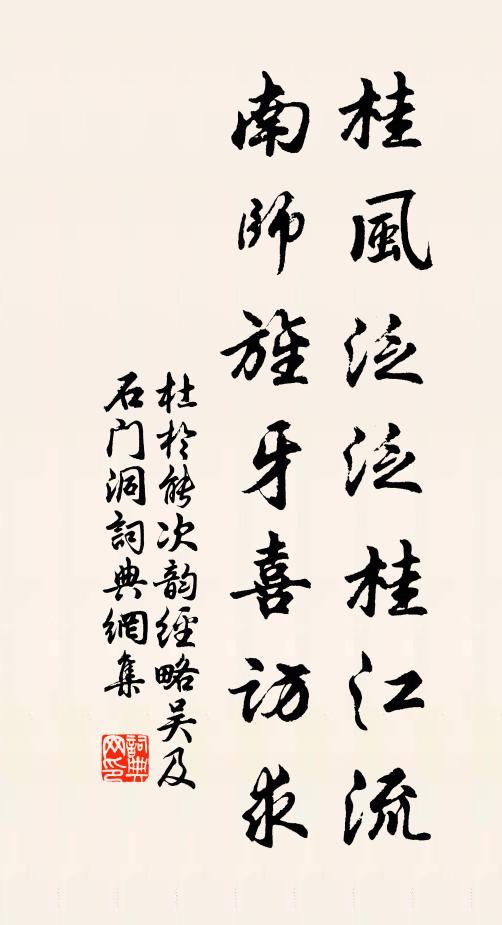 桂風泛泛桂江流
南師旌牙喜訪求
杜於能次韵經略吴及
石门洞詞典網集
詞典网印